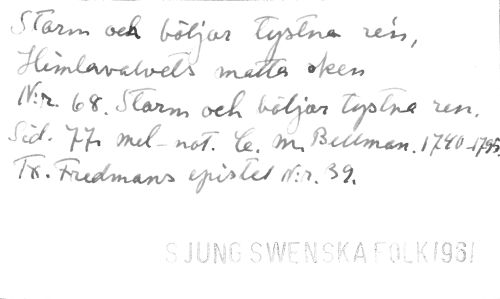 Storm och böljor tystna re'n,
Himlavalvets matta sken
N:r. 68. Storm och böljor tystna ren.
Sid. 77. mel-not. C. M. Bellman. 1740-1795.
Tx. Fredmans epistel N:r. 39.
SJUNG SWENSKA FOLK 1961